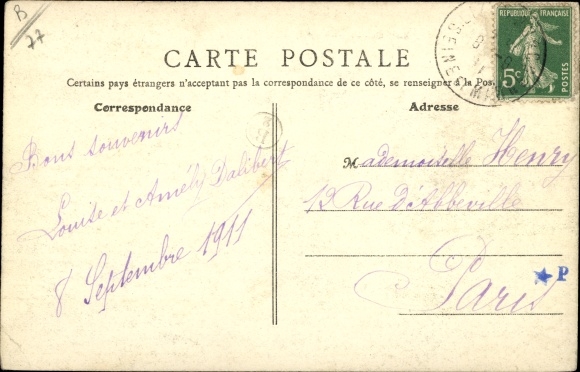 B
77
RÉPUBLIQUE FRANÇAISE
5c
CARTE POSTALE
Certains pays étrangers n'acceptant pas la correspondance de ce côté, se renseigner à la Pos
Correspondance
Adresse
Bons souvenirs
Louise et Amély Dalibert
8 Septembre 1911
Mademoiselle Henry
12 Rue d'Abbeville
Paris
P